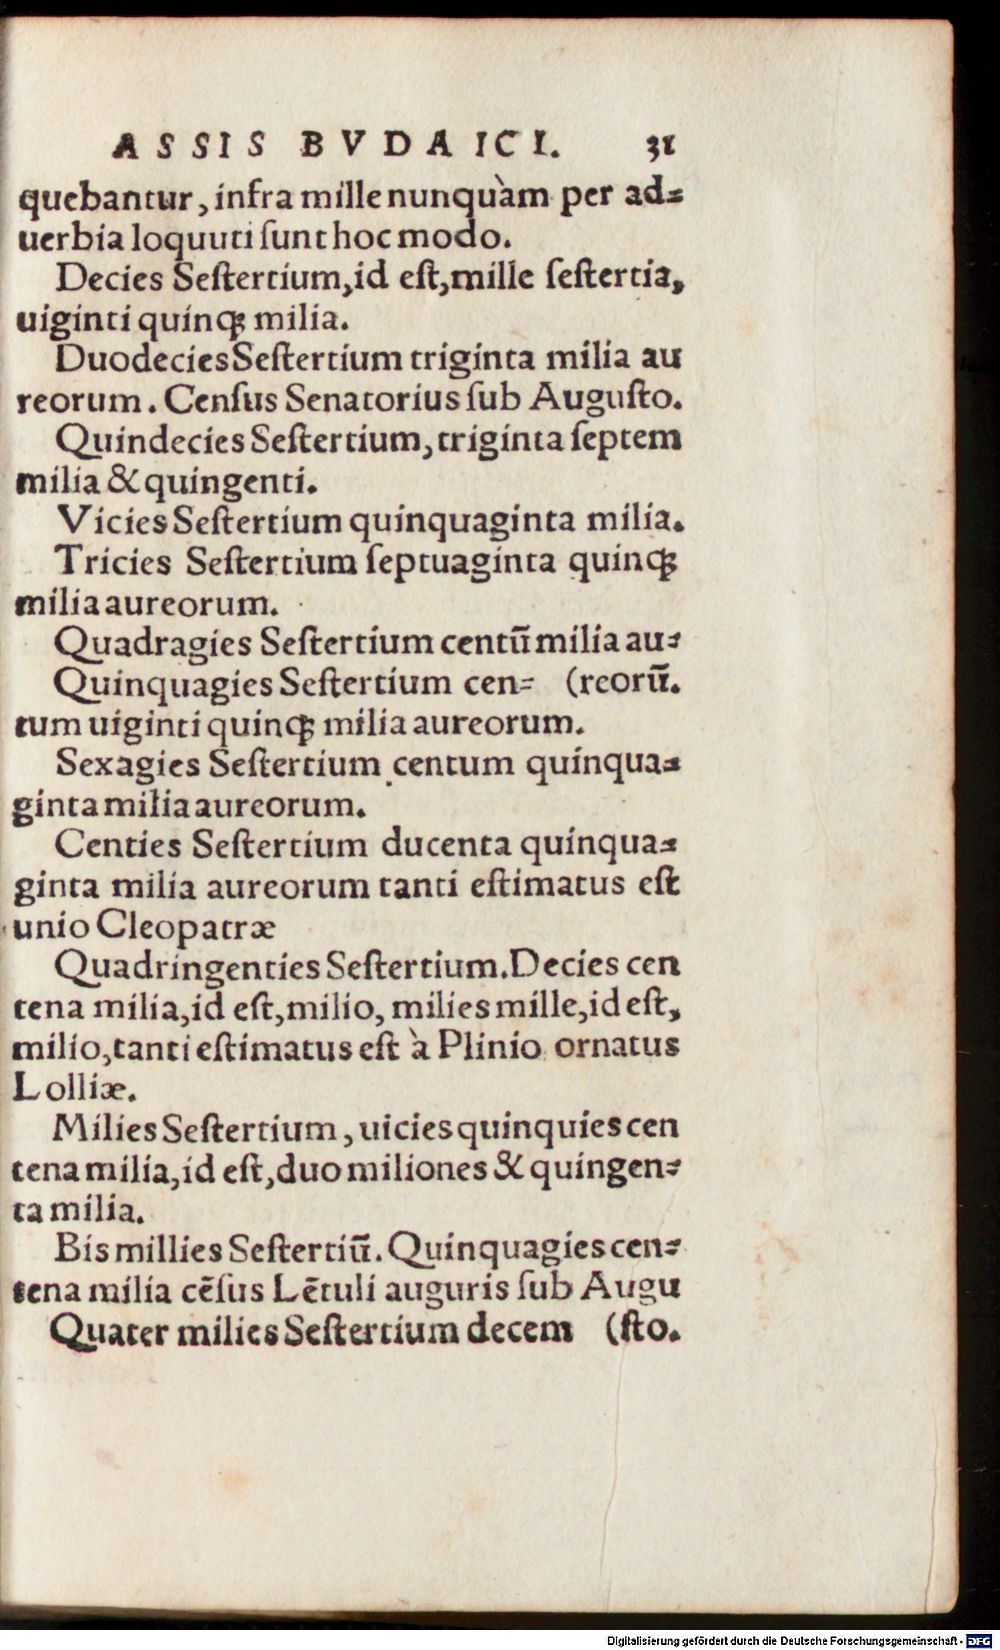 ASSIS BVDAICI. 31
quebantur, infra mille nunquàm per ad=
uerbia loquuti ſunt hoc modo.
Decies Seſtertium, id eſt, mille ſeſtertia,
uiginti quinqꝫ milia.
Duodecies Seſtertium triginta milia au
reorum. Cenſus Senatorius ſub Auguſto.
Quindecies Seſtertium, triginta ſeptem
milia & quingenti.
Vicies Seſtertium quinquaginta milia.
Tricies Seſtertium ſeptuaginta quinqꝫ
milia aureorum.
Quadragies Seſtertium centū milia au=
Quinquagies Seſtertium cen= (reorū.
tum uiginti quinqꝫ milia aureorum.
Sexagies Seſtertium centum quinqua=
ginta milia aureorum.
Centies Seſtertium ducenta quinqua=
ginta milia aureorum tanti eſtimatus eſt
unio Cleopatræ
Quadringenties Seſtertium. Decies cen
tena milia, id eſt, milio, milies mille, id eſt,
milio, tanti eſtimatus eſt à Plinio ornatus
Lolliæ.
Milies Seſtertium, uicies quinquies cen
tena milia, id eſt, duo miliones & quingen=
ta milia.
Bis millies Seſtertiū. Quinquagies cen=
tena milia cēſus Lētuli auguris ſub Augu
Quater milies Seſtertium decem (ſto.
Digitalisierung gefördert durch die Deutsche Forschungsgemeinschaft - DFG